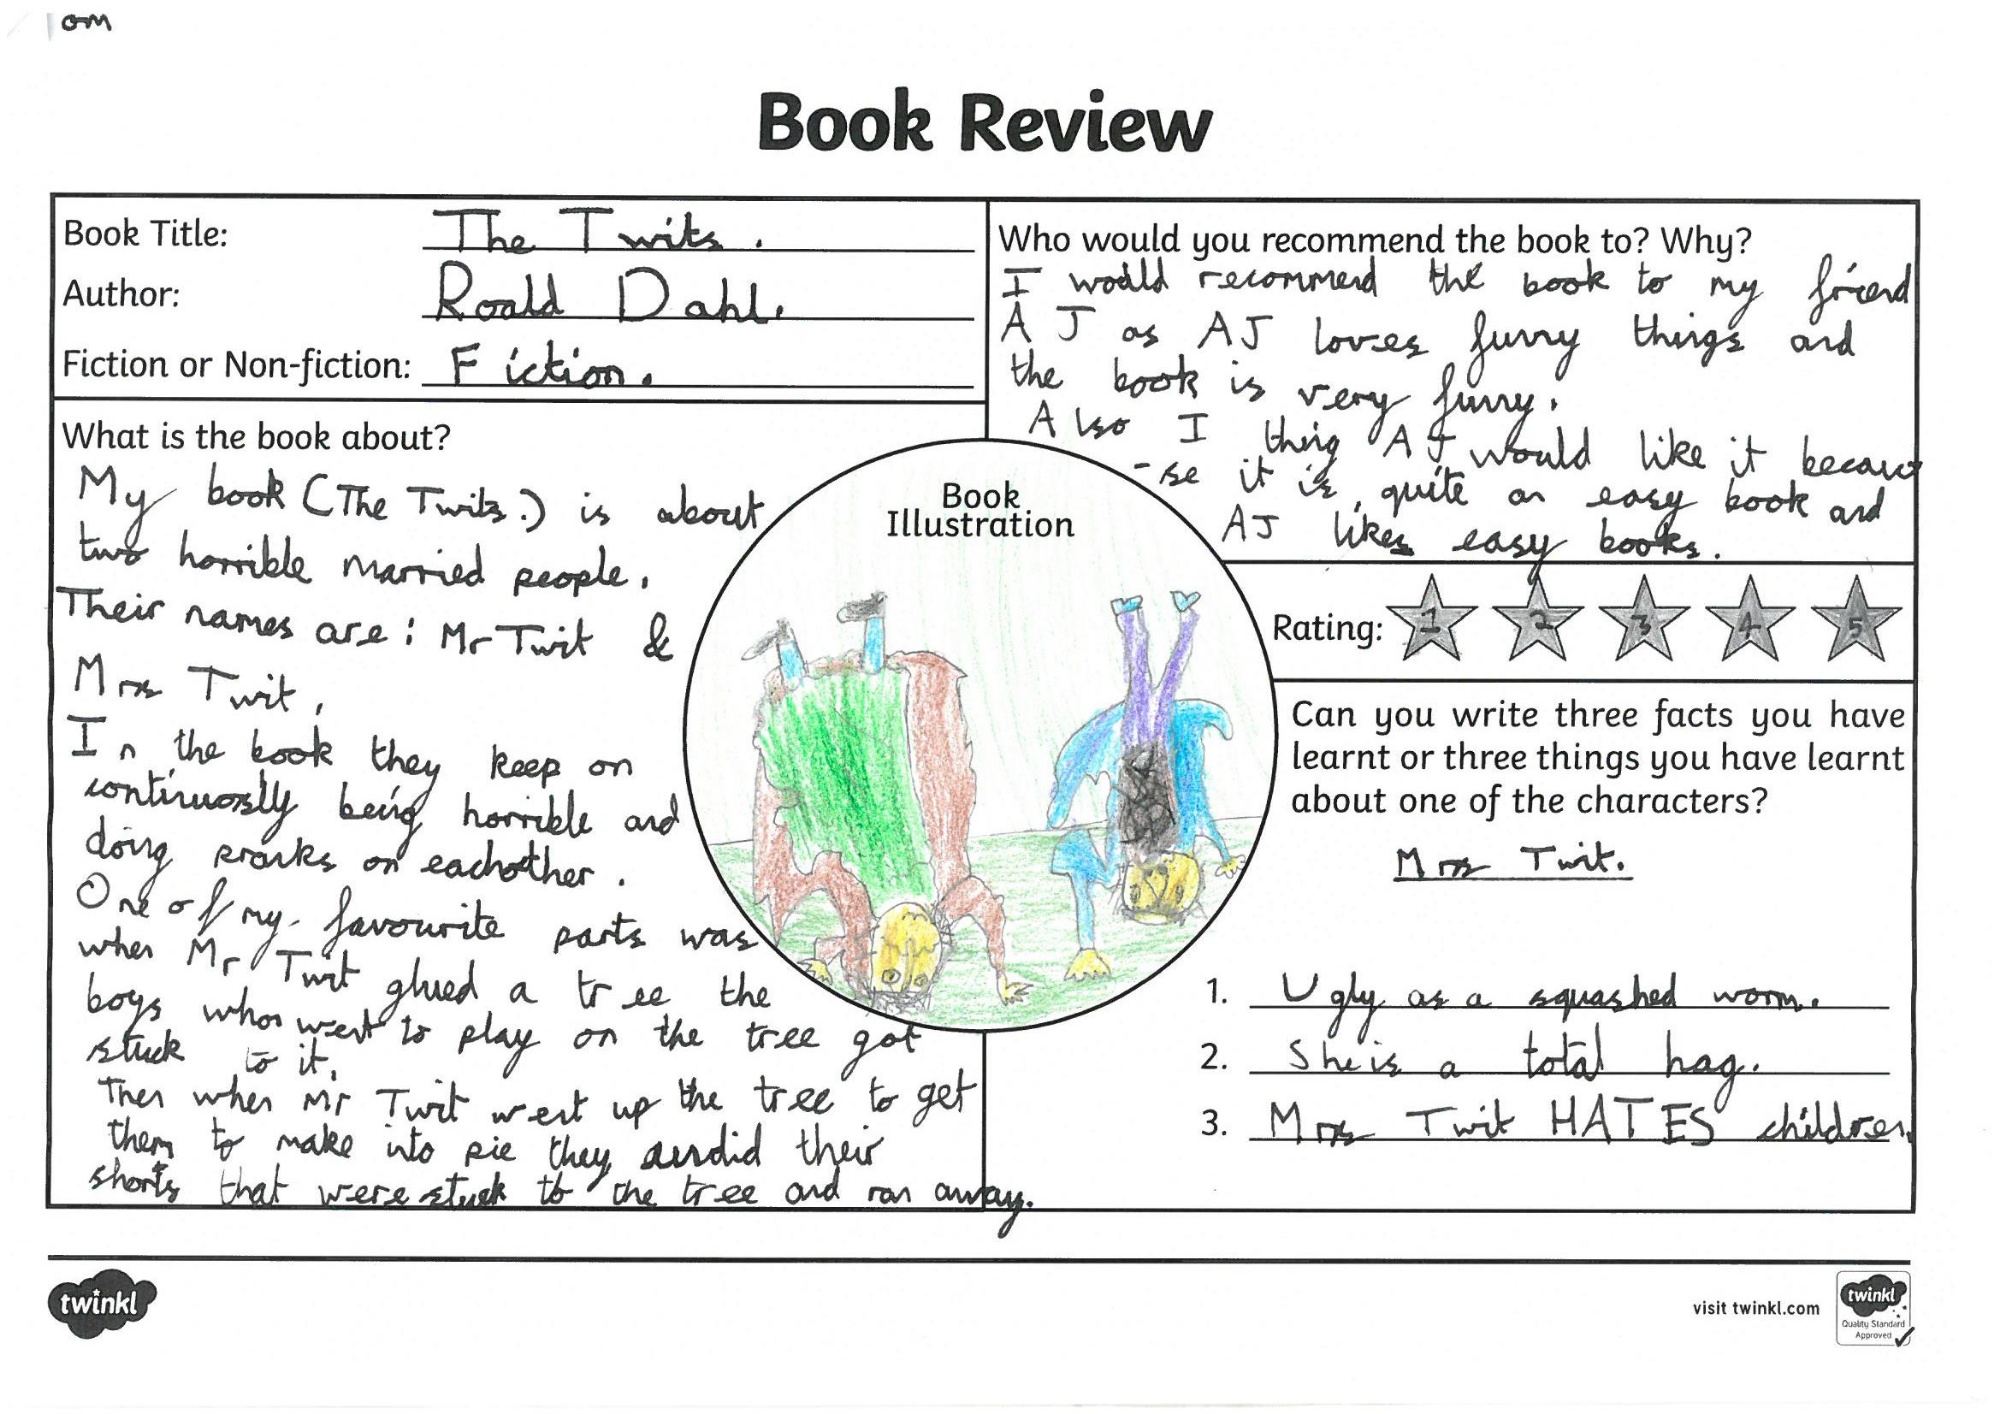 om
Book Review
Book Title: The Twits.
Author: Roald Dahl.
Fiction or Non-fiction: Fiction.
What is the book about?
My book (The Twits.) is about
two horrible married people.
Their names are: Mr Twit &
Mrs Twit.
In the book they keep on
continuosly being horrible and
doing pranks on eachother.
One of my favourite parts was
when Mr Twit glued a tree the
boys who went to play on the tree got
stuck to it.
Then when Mr Twit went up the tree to get
them to make into pie they undid their
shorts that were stuck to the tree and ran away.
Who would you recommend the book to? Why?
I would recommend the book to my friend
AJ as AJ loves funny things and
the book is very funny.
Also I thing AJ would like it becau
-se it is quite an easy book and
AJ likes easy books.
Book
Illustration
Rating: 1 2 3 4 5
Can you write three facts you have
learnt or three things you have learnt
about one of the characters?
Mrs Twit.
1. Ugly as a squashed worm.
2. She is a total hag.
3. Mrs Twit HATES children.
twinkl
visit twinkl.com
twinkl
Quality Standard
Approved